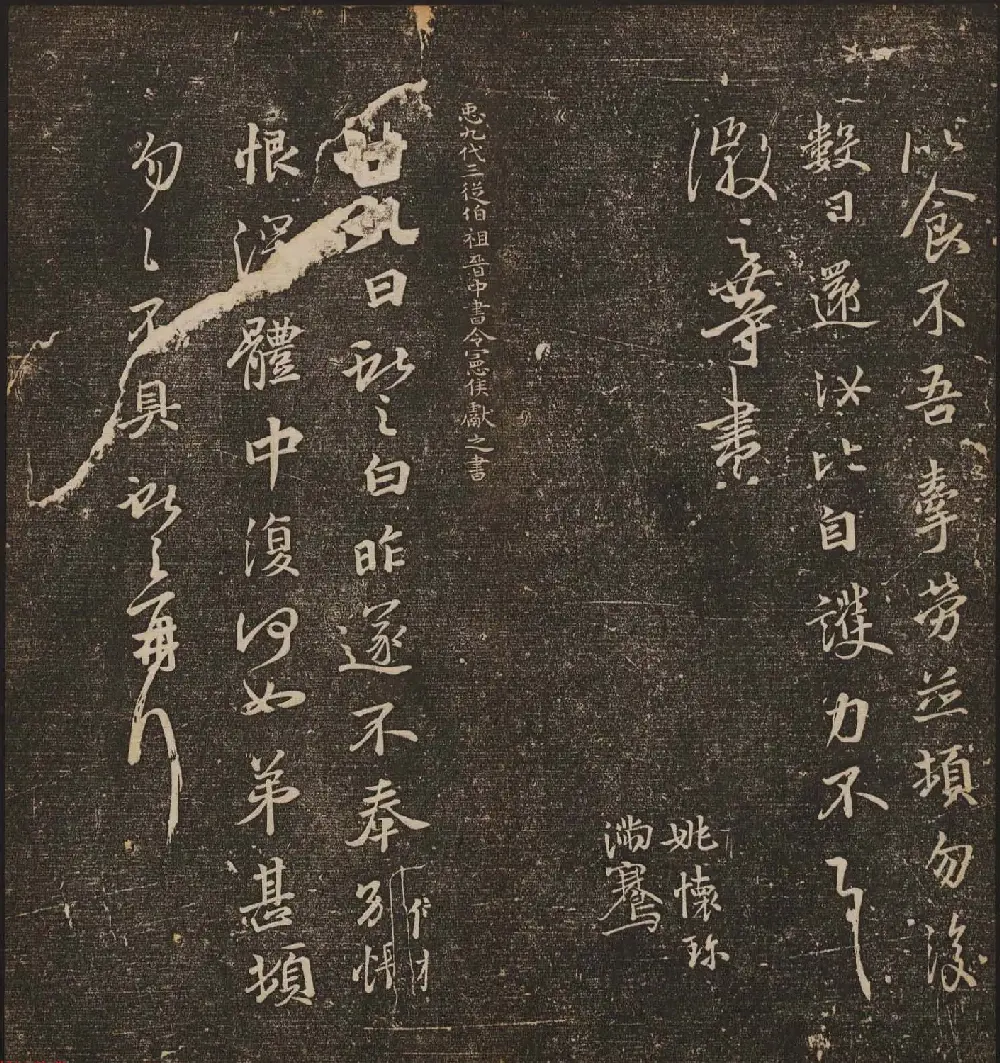 似食不吾牽勞並頓勿復
數日還汝比自護力不一一
徽之等書
姚懷珍
滿騫
𢘑九代三從伯祖晉中書令憲侯獻之書
廿九日獻之白昨遂不奉別悵
恨深體中復何如弟甚頓
勿勿不具獻之再拜